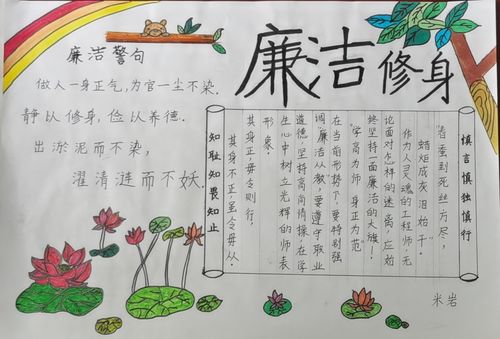 廉洁修身
廉洁警句
做人一身正气,为官一尘不染.
静以修身,俭以养德.
出淤泥而不染,
濯清涟而不妖.
慎言慎独慎行
"春蚕到死丝方尽,
蜡炬成灰泪始干."
作为人灵魂的工程师,无
论面对怎样的迷离,应始
终坚持一面廉洁的大旗!
"学高为师,身正为范"
在当前形势下,要特别强
调"廉洁从教",要遵守职业
道德,坚持高尚情操,在学
生心中树立光辉的师表
形象.
其身正,毋令则行,
其身不正,虽令毋从.
知耻知畏知止
米岩